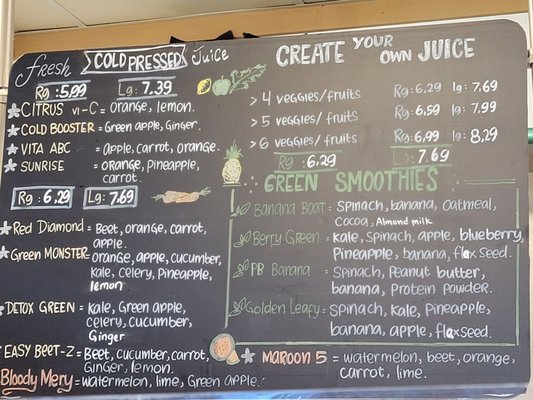 Fresh COLD PRESSED Juice
Rg: 5,99 Lg: 7.39
CITRUS vi-C = orange, lemon.
COLD BOOSTER = Green apple, Ginger.
VITA ABC = apple, carrot, orange.
SUNRISE = orange, Pineapple,
carrot.
Rg: 6,29 Lg: 7.69
Red Diamond = Beet, orange, carrot,
apple.
Green MONSTER = orange, apple, cucumber,
kale, celery, Pineapple,
lemon
DETOX GREEN = Kale, Green apple,
celery, cucumber,
Ginger
EASY BEET-Z = Beet, cucumber, carrot,
Ginger, lemon.
Bloody Mery = watermelon, lime, Green apple.
CREATE YOUR OWN JUICE
> 4 veggies/fruits Rg: 6,29 lg: 7.69
> 5 veggies/fruits Rg: 6,59 lg: 7.99
> 6 veggies/fruits Rg: 6,99 lg: 8,29
Rg: 6.29 Lg: 7.69
GREEN SMOOTHIES
Banana Boat = Spinach, banana, Oatmeal,
Cocoa, Almond milk
Berry Green = kale, Spinach, apple, blueberry,
Pineapple, banana, flax seed.
PB Banana = Spinach, Peanut butter,
banana, Protein powder.
Golden Leafy = Spinach, kale, Pineapple,
banana, apple, flaxseed.
MAROON 5 = watermelon, beet, orange,
carrot, lime.